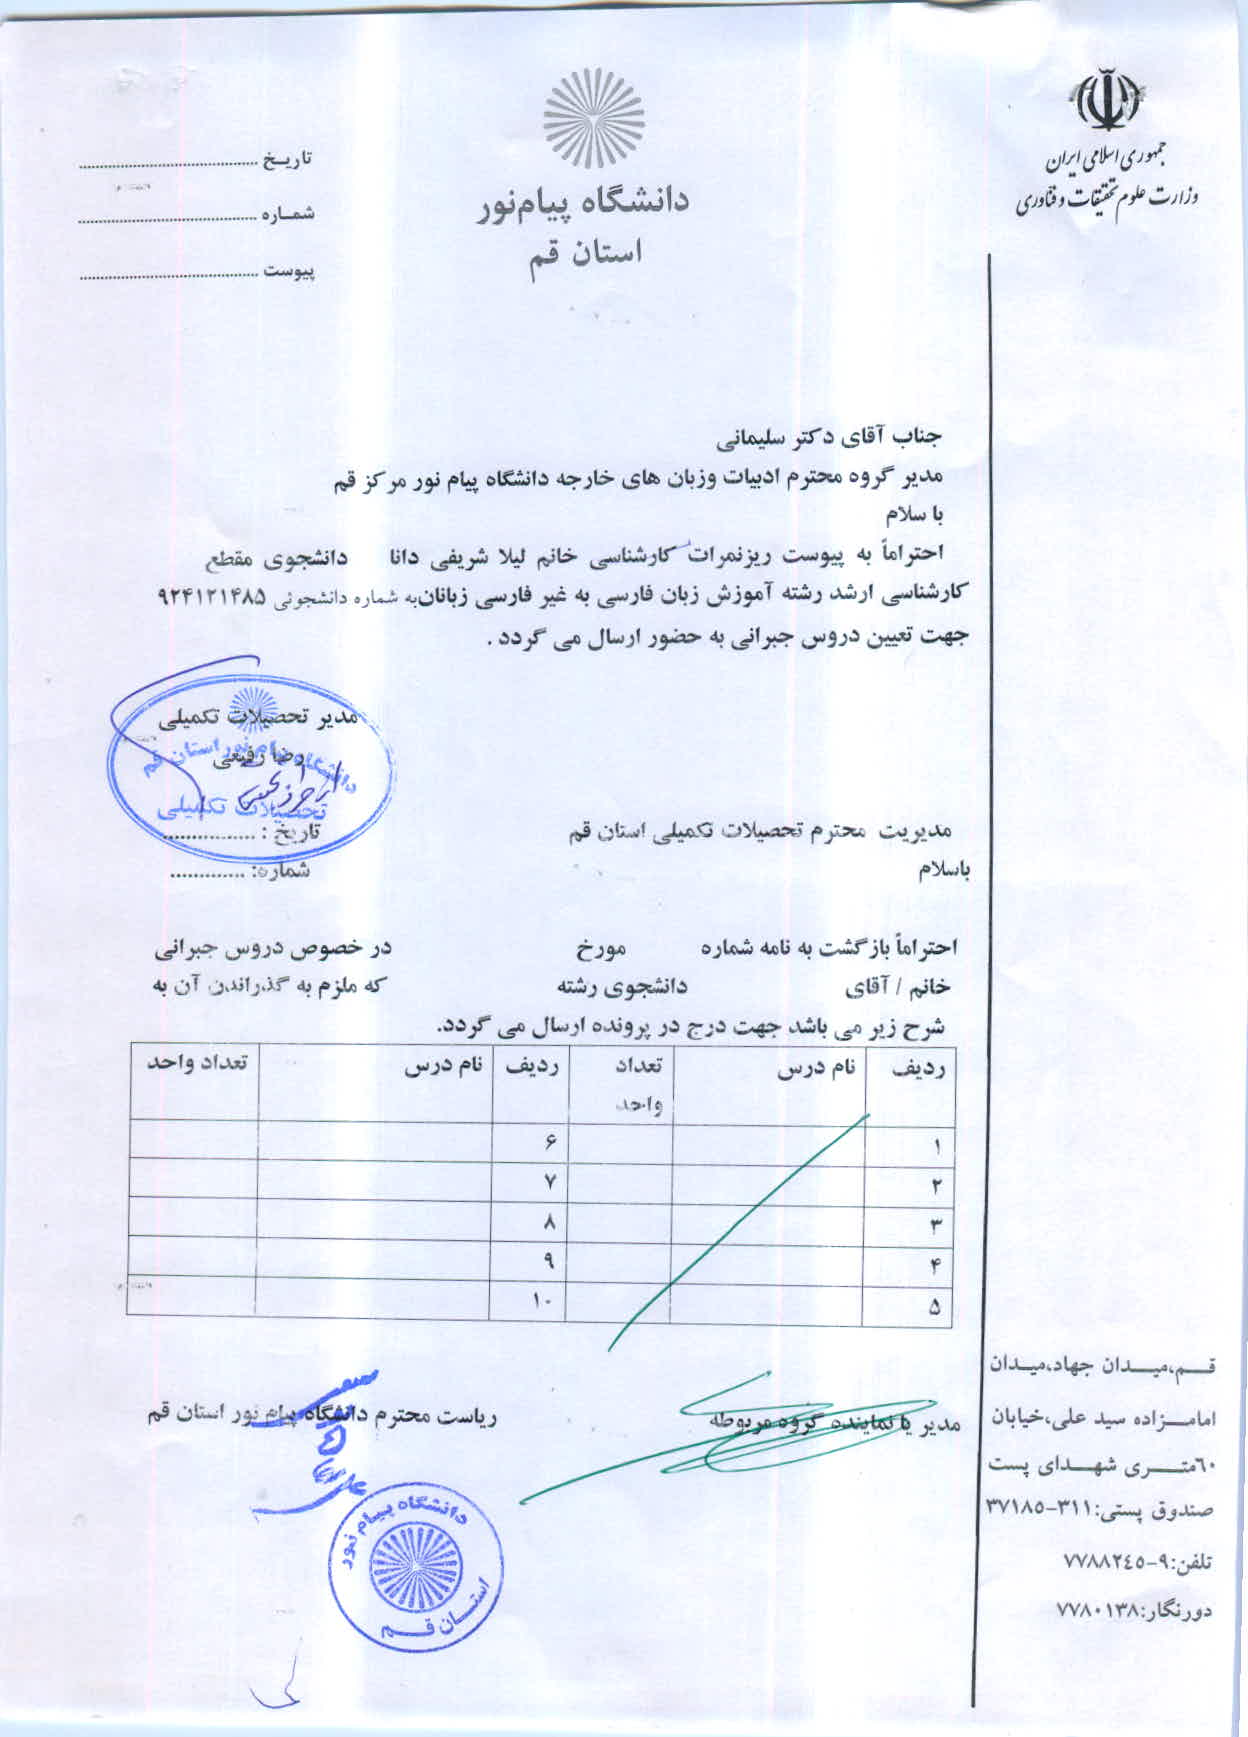 جمهوری اسلامی ایران
وزارت علوم تحقیقات و فناوری
دانشگاه پیام‌نور
استان قم
تاریـخ
شمـاره
پیوست
جناب آقای دکتر سلیمانی
مدیر گروه محترم ادبیات وزبان های خارجه دانشگاه پیام نور مرکز قم
با سلام
احتراماً به پیوست ریزنمرات کارشناسی خانم لیلا شریفی دانا دانشجوی مقطع
کارشناسی ارشد رشته آموزش زبان فارسی به غیر فارسی زبانان‌به شماره دانشجوئی ۹۲۴۱۲۱۴۸۵
جهت تعیین دروس جبرانی به حضور ارسال می گردد .
مدیر تحصیلات تکمیلی
رضا رفیعی
دانشگاه پیام نور استان قم
تحصیلات تکمیلی
تاریخ : ................
شماره: .............
مدیریت محترم تحصیلات تکمیلی استان قم
باسلام
احتراماً بازگشت به نامه شماره مورخ در خصوص دروس جبرانی
خانم / آقای دانشجوی رشته که ملزم به گذراندن آن به
شرح زیر می باشد جهت درج در پرونده ارسال می گردد.
ردیف نام درس تعداد واحد ردیف نام درس تعداد واحد
۱ ۶
۲ ۷
۳ ۸
۴ ۹
۵ ۱۰
مدیر یا نماینده گروه مربوطه
ریاست محترم دانشگاه پیام نور استان قم
دانشگاه پیـام نور
استـان قـم
قـم،میـدان جهاد،میـدان
امامـزاده سید علی،خیابان
٦٠متـری شهـدای پست
صندوق پستی:۳۱۱-۳۷۱۸۵
تلفن:۹-۷۷۸۸۲٤٥
دورنگار:۷۷۸۰۱۳۸